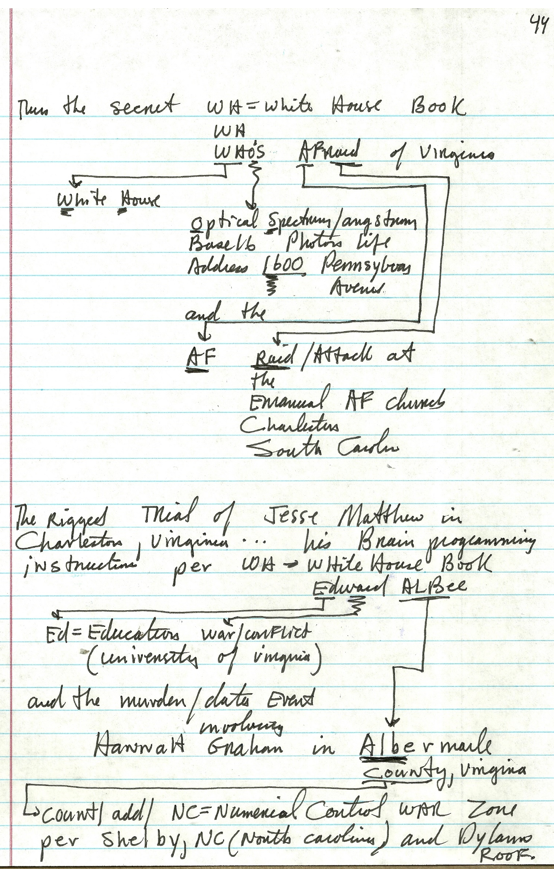 44
Thus the secret WH = White House Book
WH
WHO'S AFRaid of Virginia
White House
Optical Spectrum/angstrom
Base 16 Photon Life
Address 1600 Pennsylvania
Avenue
and the
AF Raid/Attack at
the
Emanual AF church
Charleston
South Carolin
The Rigged Trial of Jesse Matthew in
Charleston, Virginia ... his Brain programming
instruction per WH → WHite House Book
Edward ALBee
Ed = Education war/conflict
(university of virginia)
and the murder/date Event
involving
HannaH Graham in Albermarle
County, Virgina
count/add/ NC = Numerical Control WAR Zone
per Shelby, NC (North carolina) and Dylann
ROOF.